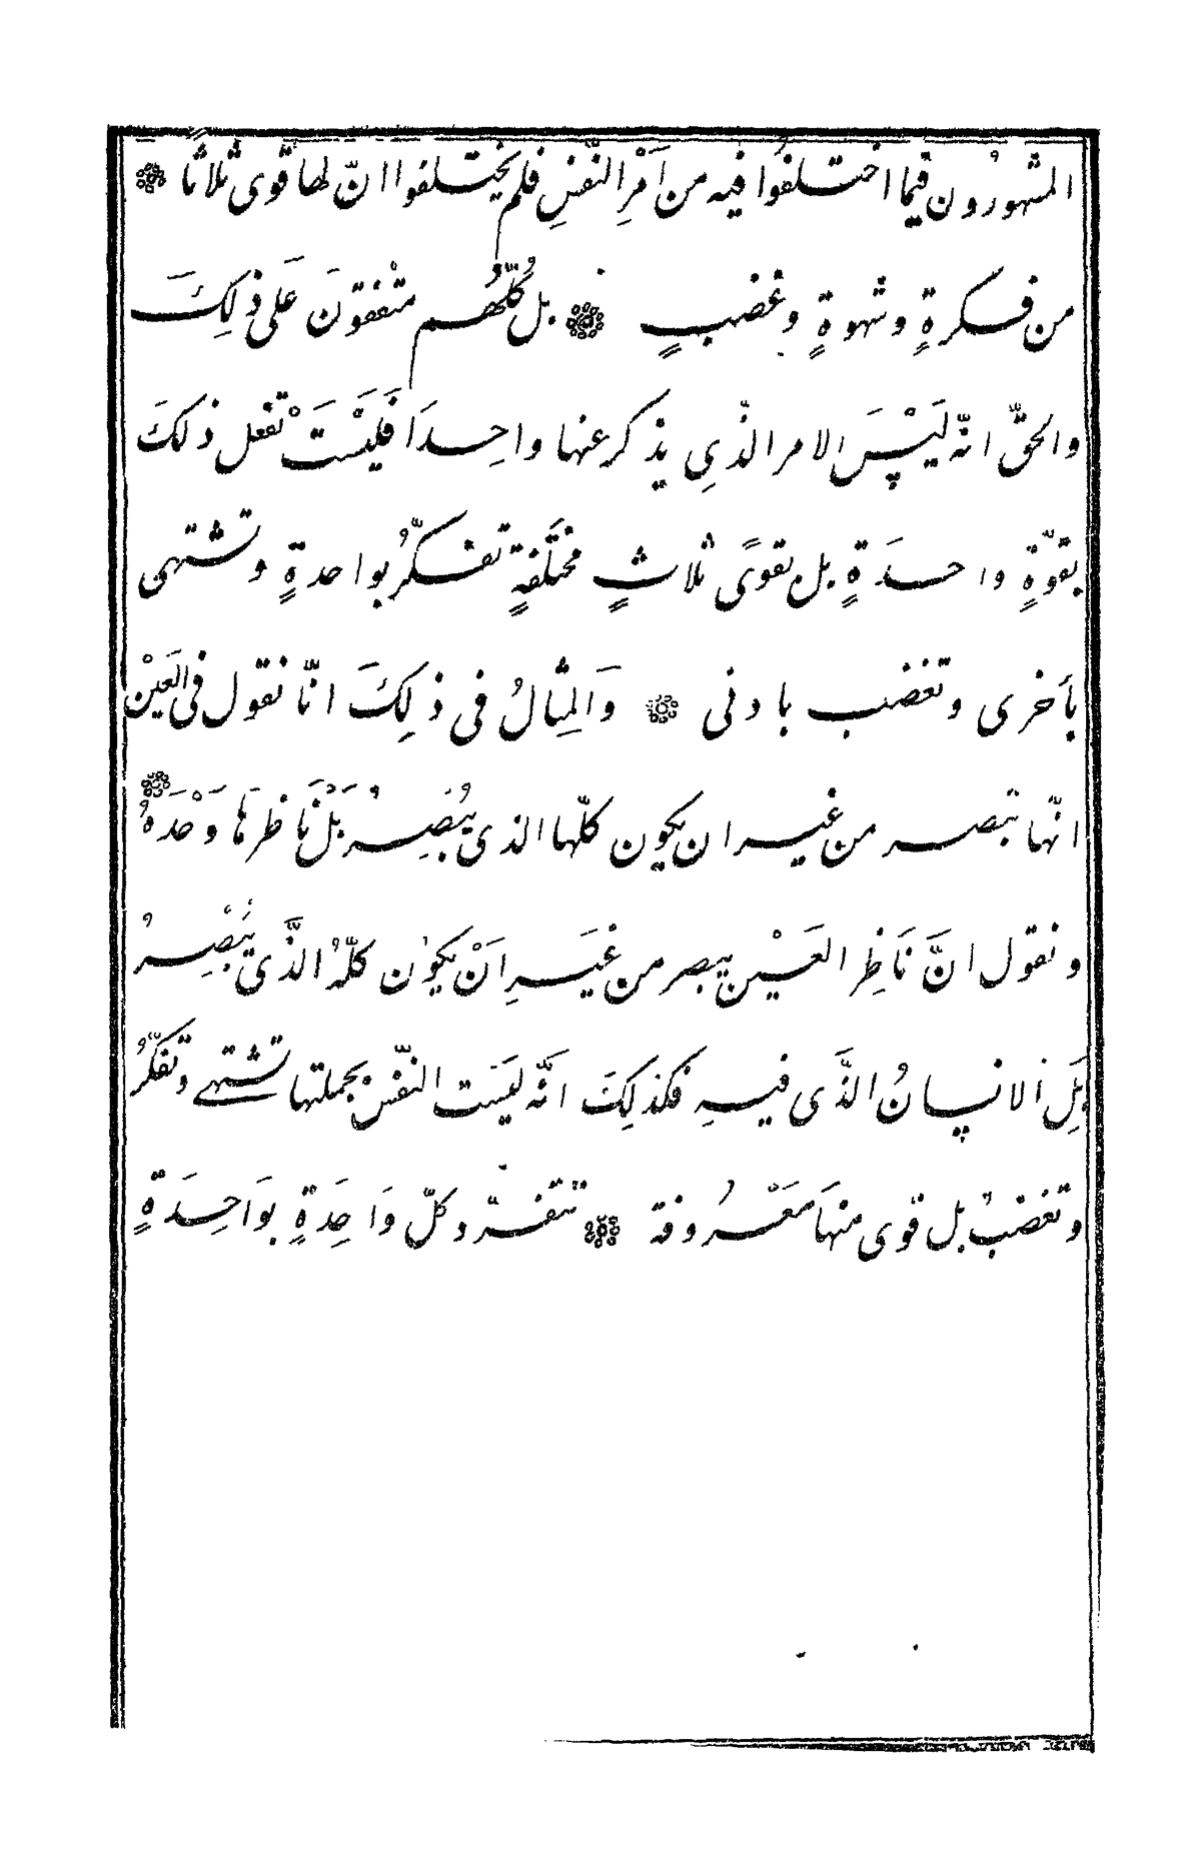 المشهورُون فيما اختلفُوا فيه من اَمْرِ النَّفْسِ فلم يختلفوا انّ لها قوى ثلاثا
من فكرةٍ وشهوةٍ وغضبٍ بل كُلُّهُم متفقونَ عَلى ذلِكَ
والحقّ انّه لَيْسَ الامر الذّي يذكر عنها واحِدَا فَلَيْسَتْ تفعل ذلكَ
بقوّةٍ واحدَةٍ بل بقوىً ثلاثٍ مختَلفةٍ تفكّرُ بواحدةٍ وتشتهى
بأخرى وتغضب باد نى وَالمِثالُ فى ذلِكَ انّا نقول فى العَيْن
انّها تبصر من غير ان يكون كلّها الذى يُبْصِرُ بَلْ نَاظرهَا وَحْدَهُ
ونقول انَّ نَاظِر العَيْن يبصر من غَيرِ اَنْ يكون كلّهُ الذَّى يُبْصِرُ
بَلِ الانسانُ الذَّى فيهِ فكذلِكَ انَّه ليَسَت النّفْس بجملتها تشتهے وتفكّرُ
وتغضبُ بل قوى منهَا مَعْرُوفة تتفرّد كلّ وَاحِدَةٍ بوَاحِدَةٍ